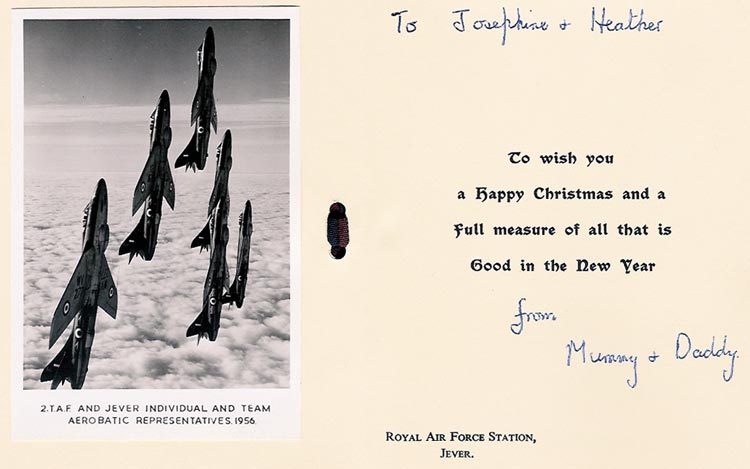 2.T.A.F. AND JEVER INDIVIDUAL AND TEAM
AEROBATIC REPRESENTATIVES.1956.
To Josephine & Heather
To wish you
a Happy Christmas and a
full measure of all that is
Good in the New Year
from
Mummy & Daddy.
ROYAL AIR FORCE STATION,
JEVER.